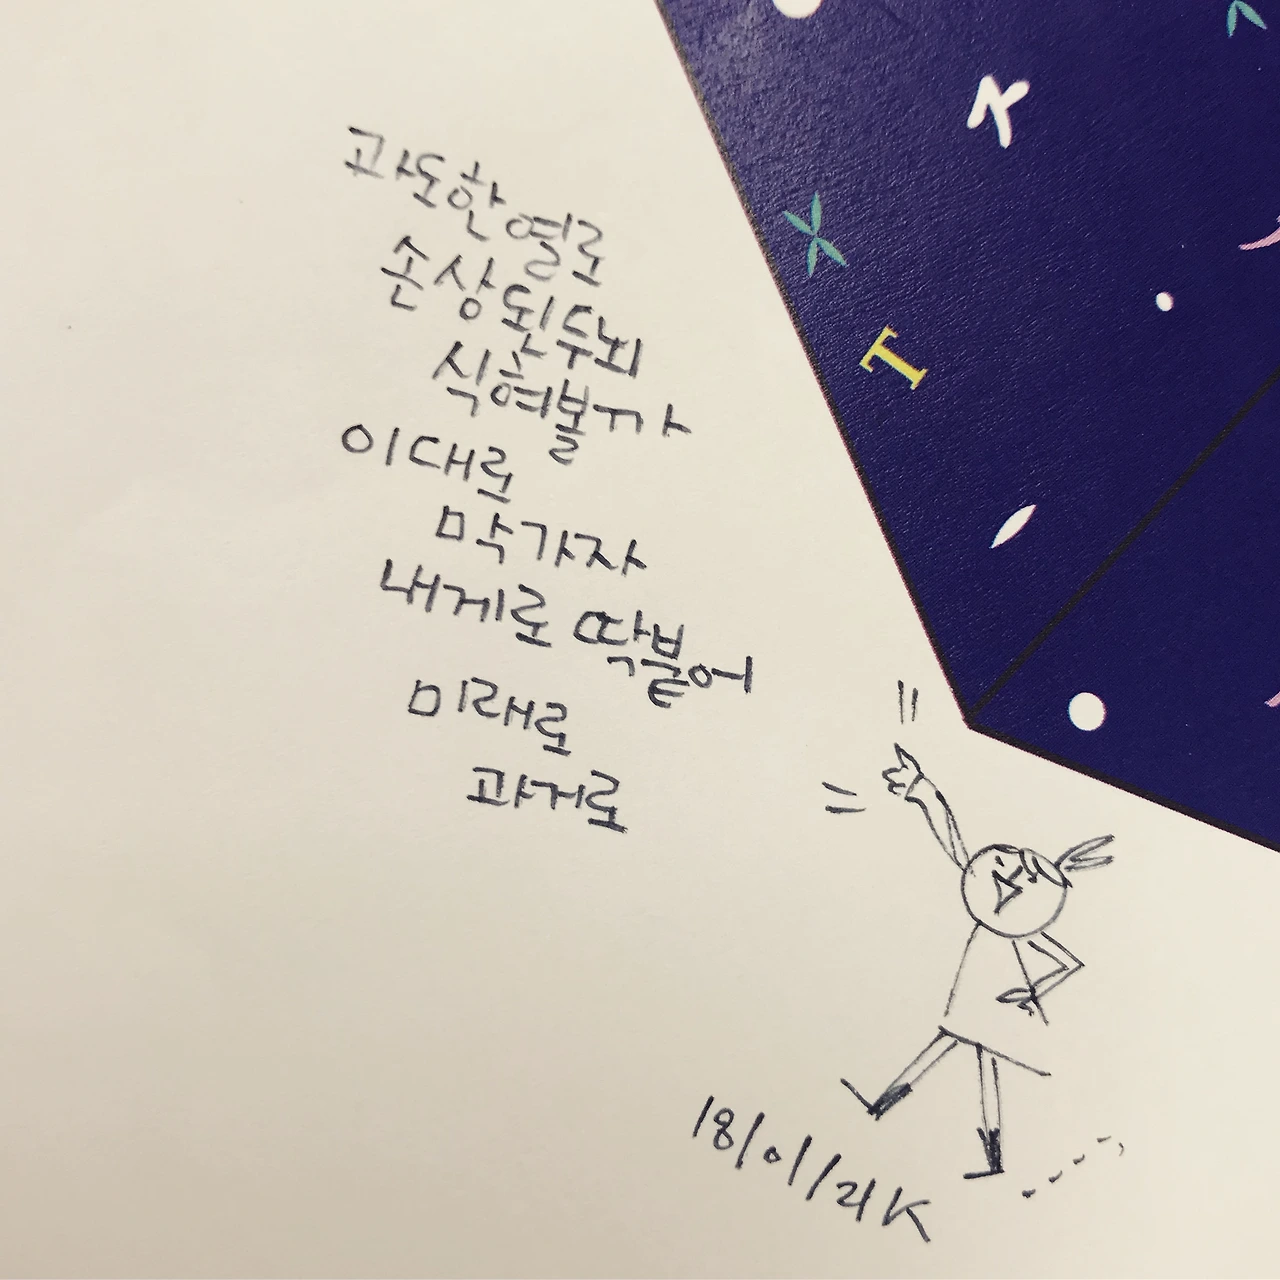 과도한 열로
손상된 두뇌
식혀볼까
이대로
막가자
내게로 딱붙어
미래로
과거로
ㅈ
T
18/01/21K